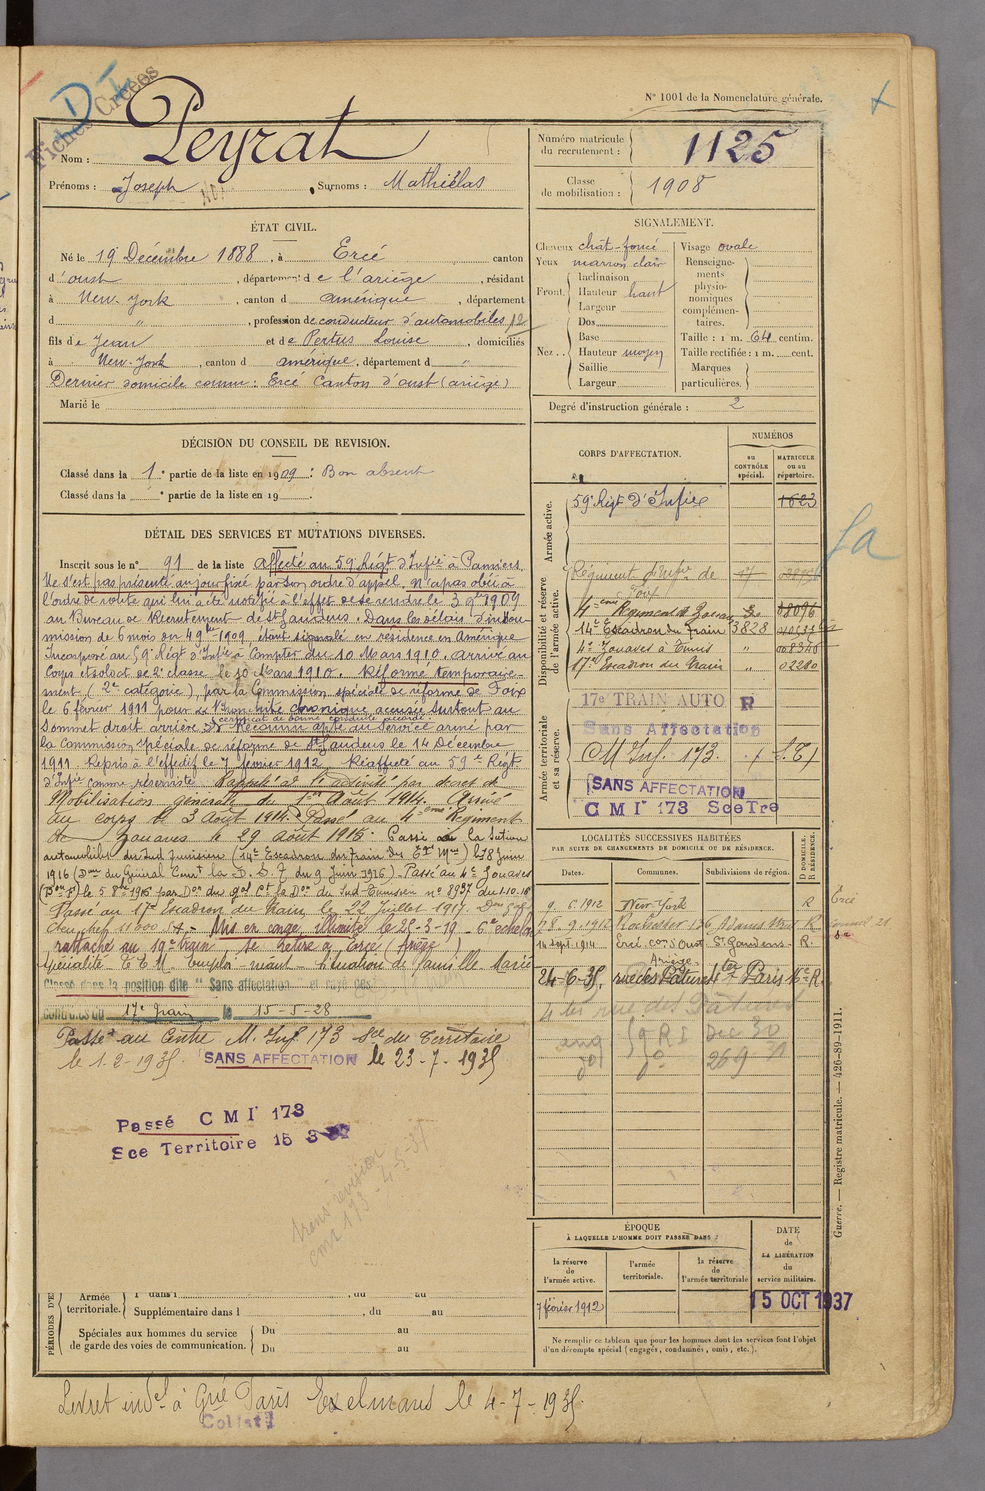 Fiches Créées
N° 1001 de la Nomenclature générale.
Nom : Peyrat
Prénoms : Joseph Surnoms : Mathiélas
Numéro matricule du recrutement : 1125
Classe de mobilisation : 1908
ÉTAT CIVIL.
Né le 19 Décembre 1888, à Ercé canton
d'oust, département de l'ariège, résidant
à New-York, canton d amérique, département
d " , profession de conducteur d'automobiles 12
fils de Jean et de Pertus Louise, domiciliés
à New-York, canton d amérique, département d "
Dernier domicile connu : Ercé Canton d'oust (ariège)
Marié le
SIGNALEMENT.
Cheveux chât-foncé
Yeux marron clair
Front. Inclinaison
Hauteur haut
Largeur
Nez.. Dos
Base
Hauteur moyen
Saillie
Largeur
Visage ovale
Renseignements physionomiques complémentaires.
Taille : 1 m. 64 centim.
Taille rectifiée : 1 m. cent.
Marques particulières.
Degré d'instruction générale : 2
DÉCISION DU CONSEIL DE REVISION.
Classé dans la 1e partie de la liste en 1909 : Bon absent
Classé dans la e partie de la liste en 19 .
DÉTAIL DES SERVICES ET MUTATIONS DIVERSES.
Inscrit sous le n° 91 de la liste affecté au 59e Régt d'Infie à Pamiers.
Ne s'est pas présenté au jour fixé par son ordre d'appel. N'a pas obéi à
l'ordre de route qui lui a été notifié à l'effet de se rendre le 3 9bre 1909
au Bureau de Recrutement de St Gaudens. Dans les délais d'insou-
mission de 6 mois du 4 9bre 1909, étant signalé en résidence en Amérique
Incorporé au 59e Régt d'Infie à compter du 10 Mars 1910. Arrivé au
Corps et soldat de 2e classe le 10 Mars 1910. Réformé temporaire-
ment, (2e catégorie), par la Commission spéciale de réforme de Foix
le 6 février 1911 pour bronchite chronique accusée surtout au
Sommet droit arrière certificat de bonne conduite accordé. Reconnu apte au Service armé par
la Commission spéciale de réforme de St Gaudens le 14 Décembre
1911. Repris à l'effectif le 7 février 1912. Réaffecté au 59e Régt
d'Infie comme réserviste. Rappelé à l'activité par décret de
Mobilisation générale du 1er Août 1914. Arrivé
au corps le 3 Août 1914. Passé au 4ème Régiment
de Zouaves le 29 Août 1915. Passé à la Section
automobile du Sud Tunisien (14e Escadron du Train des Eqes Mres) le 8 Juin
1916 (Don du Général Comt la D. S. T du 9 Juin 1916). Passé au 4e Zouaves
(Don F) le 5 8bre 1916 par Don du gal Ct la Don du Sud-Tunisien n° 8937 du 1-10-16
Passé au 17e Escadron du Train le 22 Juillet 1917.
Mis en congé illimité le 25-3-19 - 6e échelon
rattaché au 19e train Se retire à Ercé (Ariège)
Spécialité E E M. Emploi néant - Situation de famille Marié
Classé dans la position dite " Sans affectation " et rayé des
contrôles du 17e train le 15-5-28
Passé au Centre M. Inf 173 Sce du Territoire
le 1.2-1935. SANS AFFECTATION le 23-7-1935
Passé C M I 173
Sce Territoire 15 3
CORPS D'AFFECTATION.
NUMÉROS
au CONTRÔLE spécial.
MATRICULE ou au répertoire.
Armée active.
59e Régt d'Infie 1623
Disponibilité et réserve de l'armée active.
Régiment d'Infie de Foix
4ème Régiment de Zouaves 18096
14e Escadron du Train 3828
4e Zouaves à Tunis "
17e Escadron du Train " 02280
Armée territoriale et sa réserve.
17e TRAIN AUTO R
Sans Affectation
C M Inf. 173. (S. T)
SANS AFFECTATION
C M I 173 Sce Tre
LOCALITÉS SUCCESSIVES HABITÉES
PAR SUITE DE CHANGEMENTS DE DOMICILE OU DE RÉSIDENCE.
Dates. Communes. Subdivisions de région. D DOMICILE. R RÉSIDENCE.
9. 6. 1912 New-York R Ercé
9. 1912 Rochester 126 Adams R.
14 Sept. 1914 Ercé con d'Oust Ariège St Gaudens R.
24-6-35. rue des Patures 4ter Paris 16e R.
4 ter rue des Patures
ÉPOQUE
À LAQUELLE L'HOMME DOIT PASSER DANS :
la réserve de l'armée active.
l'armée territoriale.
la réserve de l'armée territoriale
DATE de LA LIBÉRATION du service militaire.
7 février 1912
15 OCT 1937
Ne remplir ce tableau que pour les hommes dont les services font l'objet
d'un décompte spécial (engagés, condamnés, omis, etc.).
PÉRIODES D'E
Armée territoriale.
1 dans l , du au
Supplémentaire dans l , du au
Spéciales aux hommes du service de garde des voies de communication.
Du au
Du au
Guerre. — Registre matricule. — 426-89-1911.
Livret indel à Gnie Paris Exelmans le 4-7-1935.